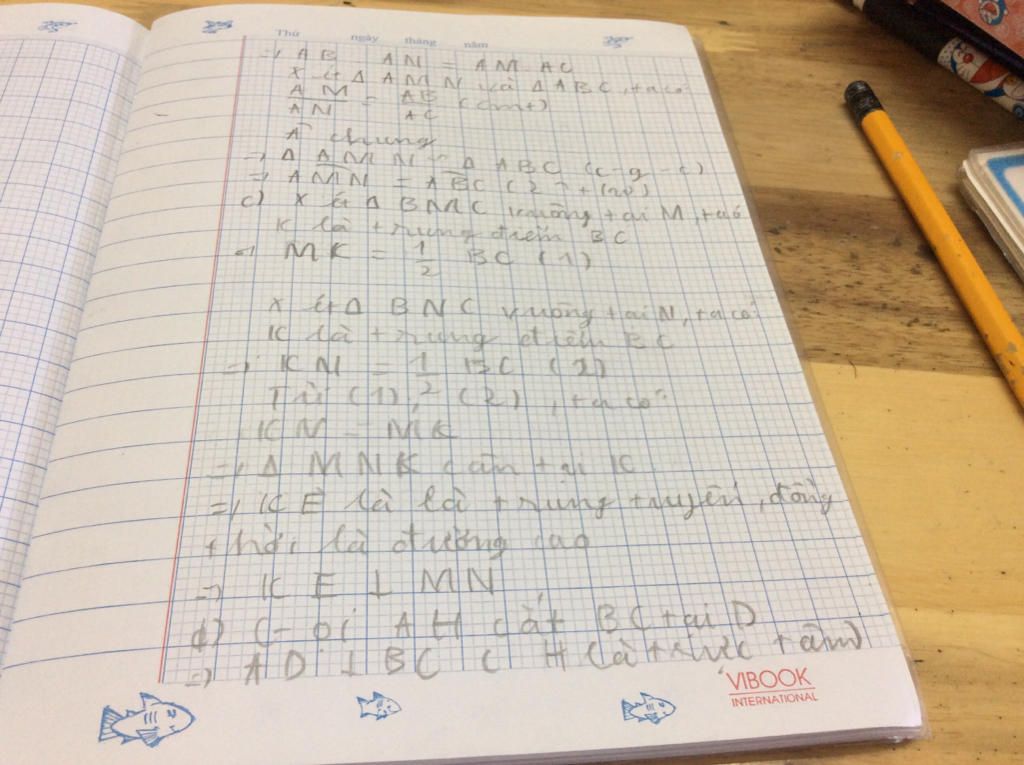 Thứ ngày tháng năm
=> AB . AN = AM . AC
Xét Δ AMN và Δ ABC, ta có:
AM/AN = AB/AC (cmt)
Â chung
=> Δ AMN ~ Δ ABC (c-g-c)
=> AMN = ABC (2 )
c) Xét Δ BMC vuông tại M, ta có
K là trung điểm BC
=> MK = 1/2 BC (1)
Xét Δ BNC vuông tại N, ta có:
K là trung điểm BC
=> KN = 1/2 BC (2)
Từ (1), (2), ta có:
KN = MK
=> Δ MNK cân tại K
=> KE là là trung tuyến, đồng
thời là đường cao
=> KE ⊥ MN
d) Gọi AH cắt BC tại D
=> AD ⊥ BC ( H là trực tâm)
VIBOOK
INTERNATIONAL